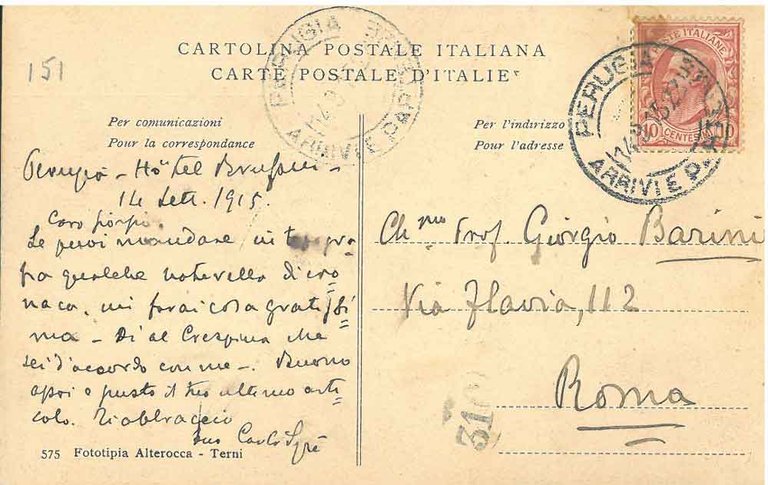 CARTOLINA POSTALE ITALIANA
CARTE POSTALE D'ITALIE
151
PERUGIA
ARRIVI E PAR
POSTE ITALIANE
10 CENTESIMI 10
PERUGIA
14. 9. 15. 22
ARRIVI E PAR
Per comunicazioni
Pour la correspondance
Per l'indirizzo
Pour l'adresse
Perugia - Hôtel Brufani -
14 Sett. 1915.
Caro
Se puoi mandare in
fia qualche noterella di cro
naca, mi farai cosa gratissi
ma - Di al Crespina che
sei d'accordo con me -. Buono
e giusto il tuo ultimo arti
colo. Ti abbraccio
tuo Carlo
Ch.mo Prof. Giorgio Barini
Via Flavia, 112
Roma
310
575 Fototipia Alterocca - Terni